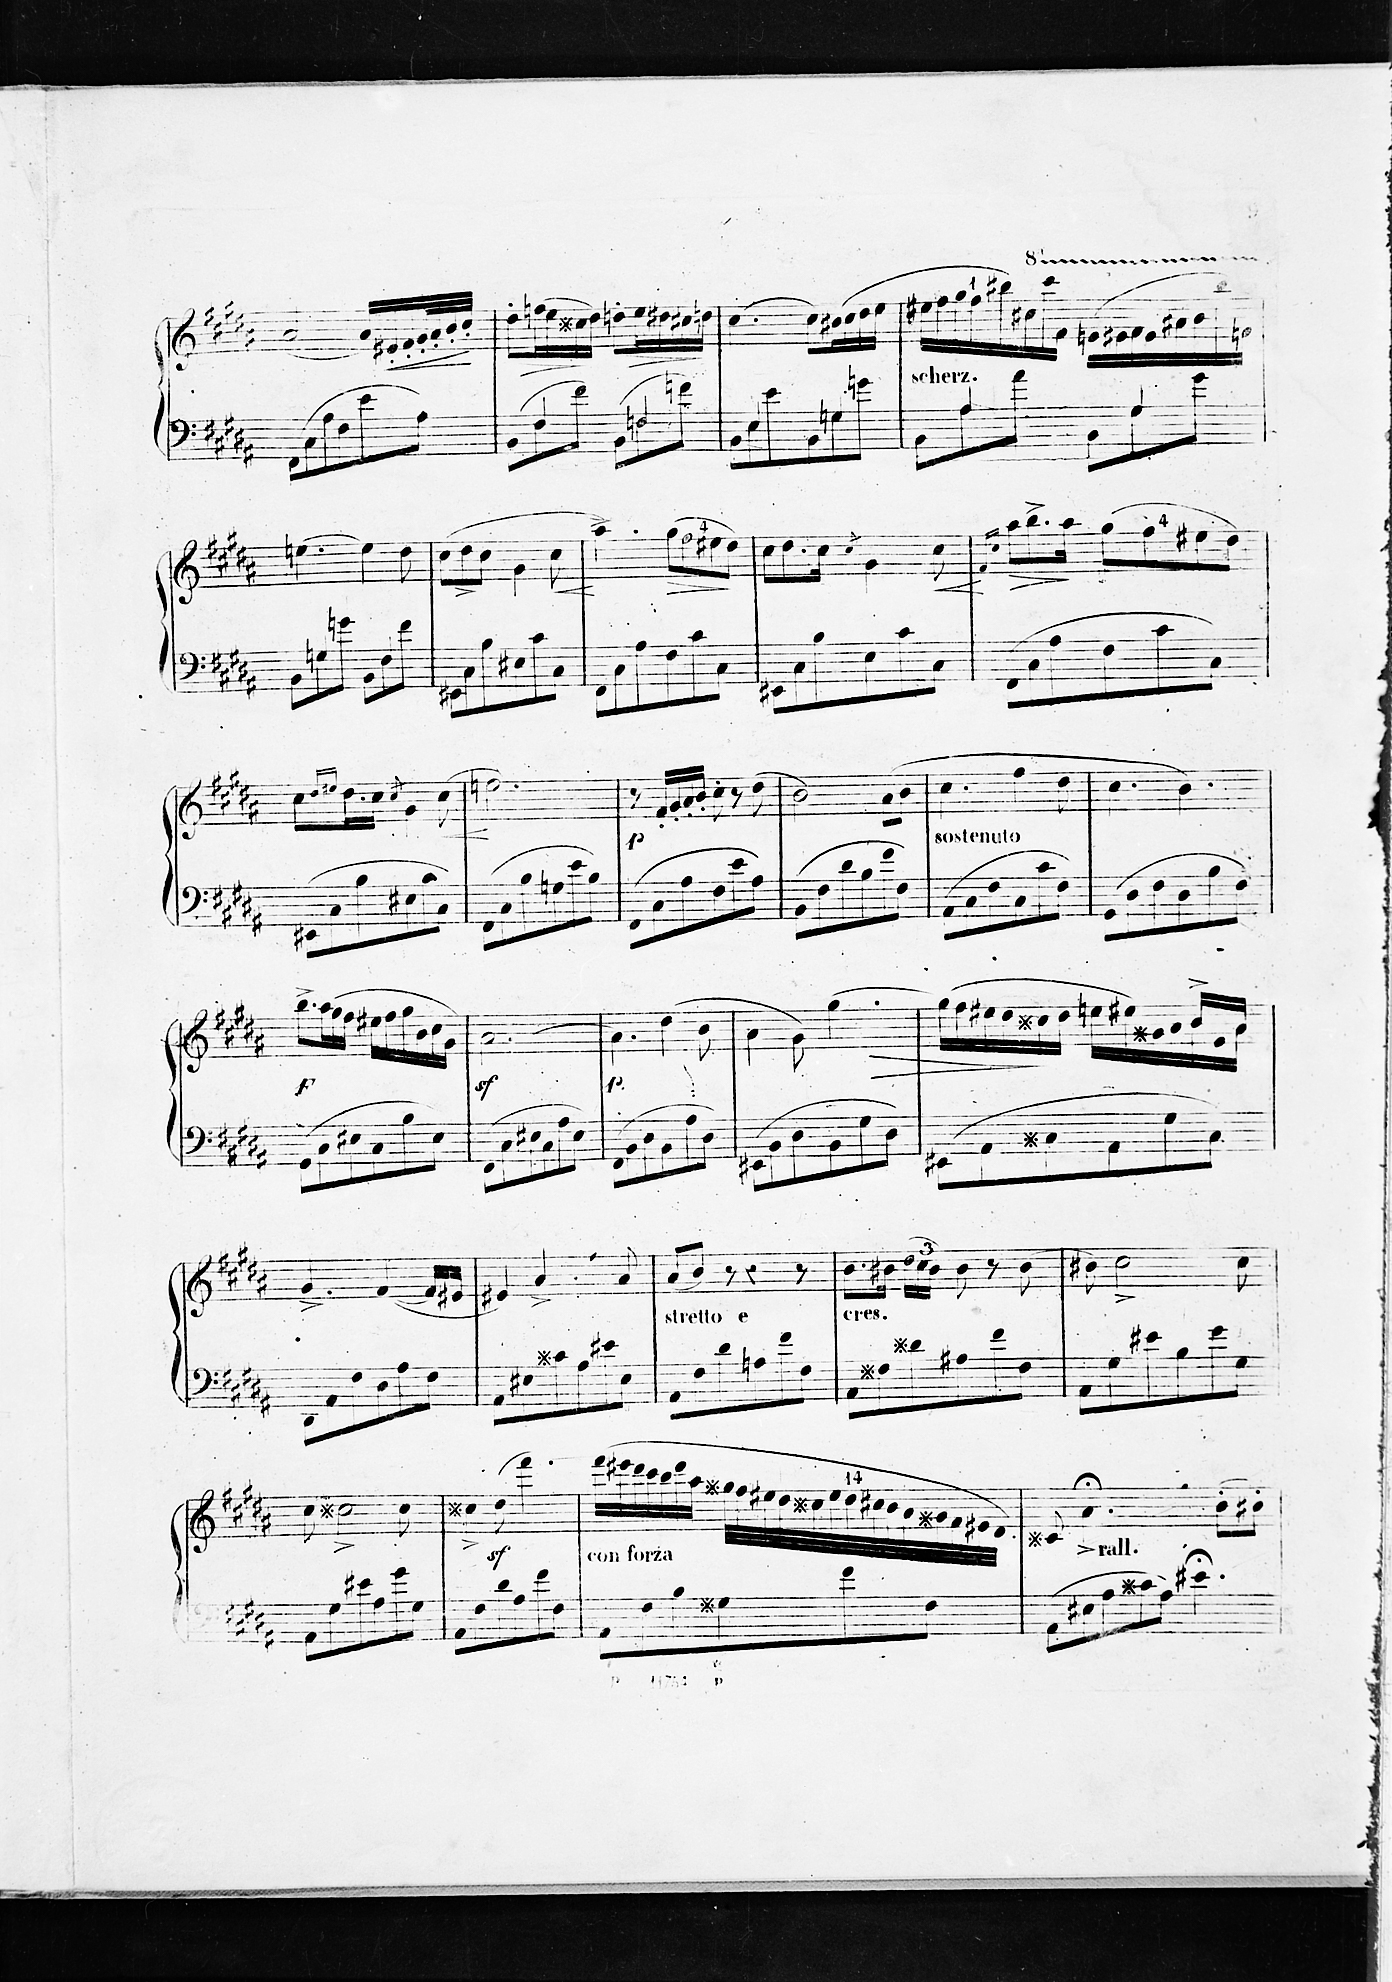 9
8
1
scherz.
4
4
p
sostenuto
F sf p.
3
stretto e cres.
14
sf con forza rall.